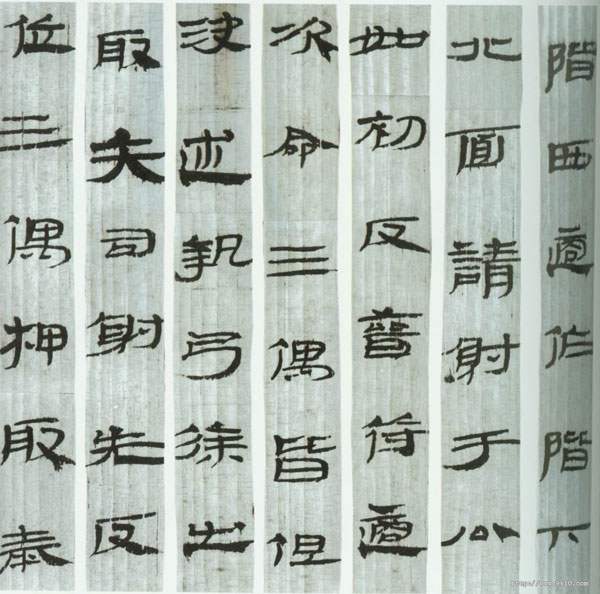 階西適作階下
北面請射于公
如初反晉適
次命三偶皆但
決述執弓徐出
取矢司射先反
位三偶押取
http://